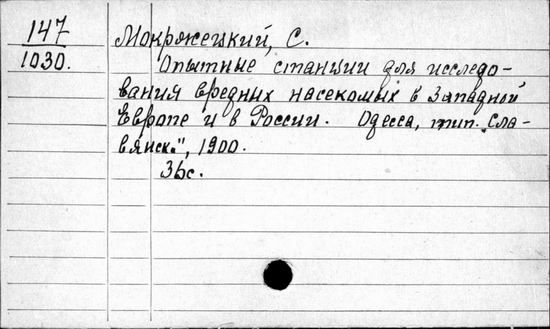 147
1030.
Мокржецкий, С.
Опытные станции для исследо-
вания вредных насекомых в Западной
Европе и в России. Одесса, тип. „Сла-
вянск.", 1900.
36с.